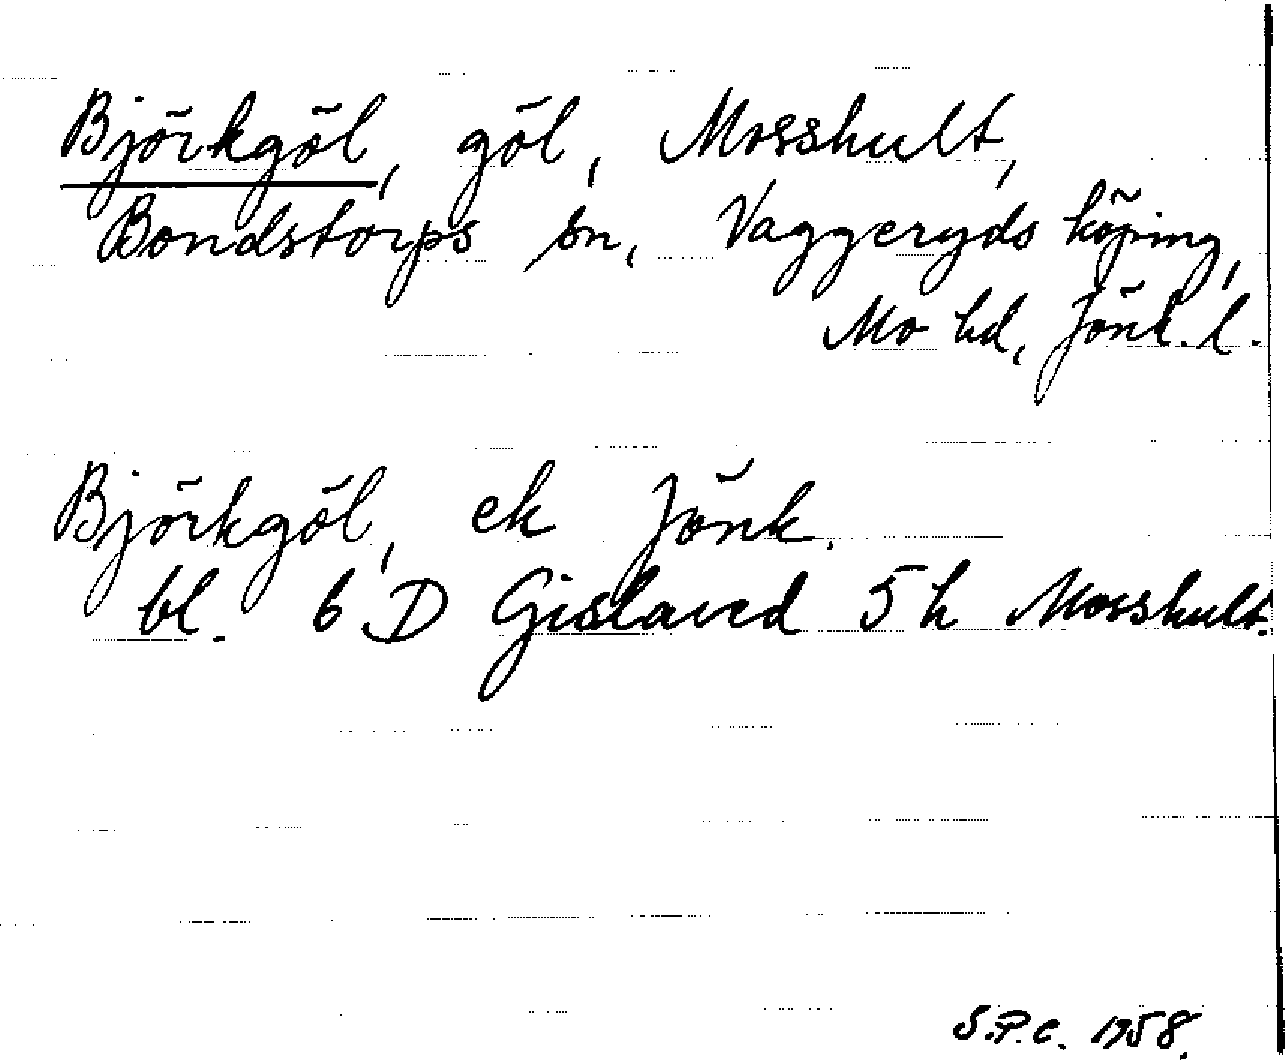 Björkgöl, göl, Mosshult,
Bondstorps sn, Vaggeryds köping,
Mo hd, Jönk. l.
Björkgöl, ek Jönk.
bl. 6 D Gislaved 5 h Mosshult.
S.P.C. 1958.